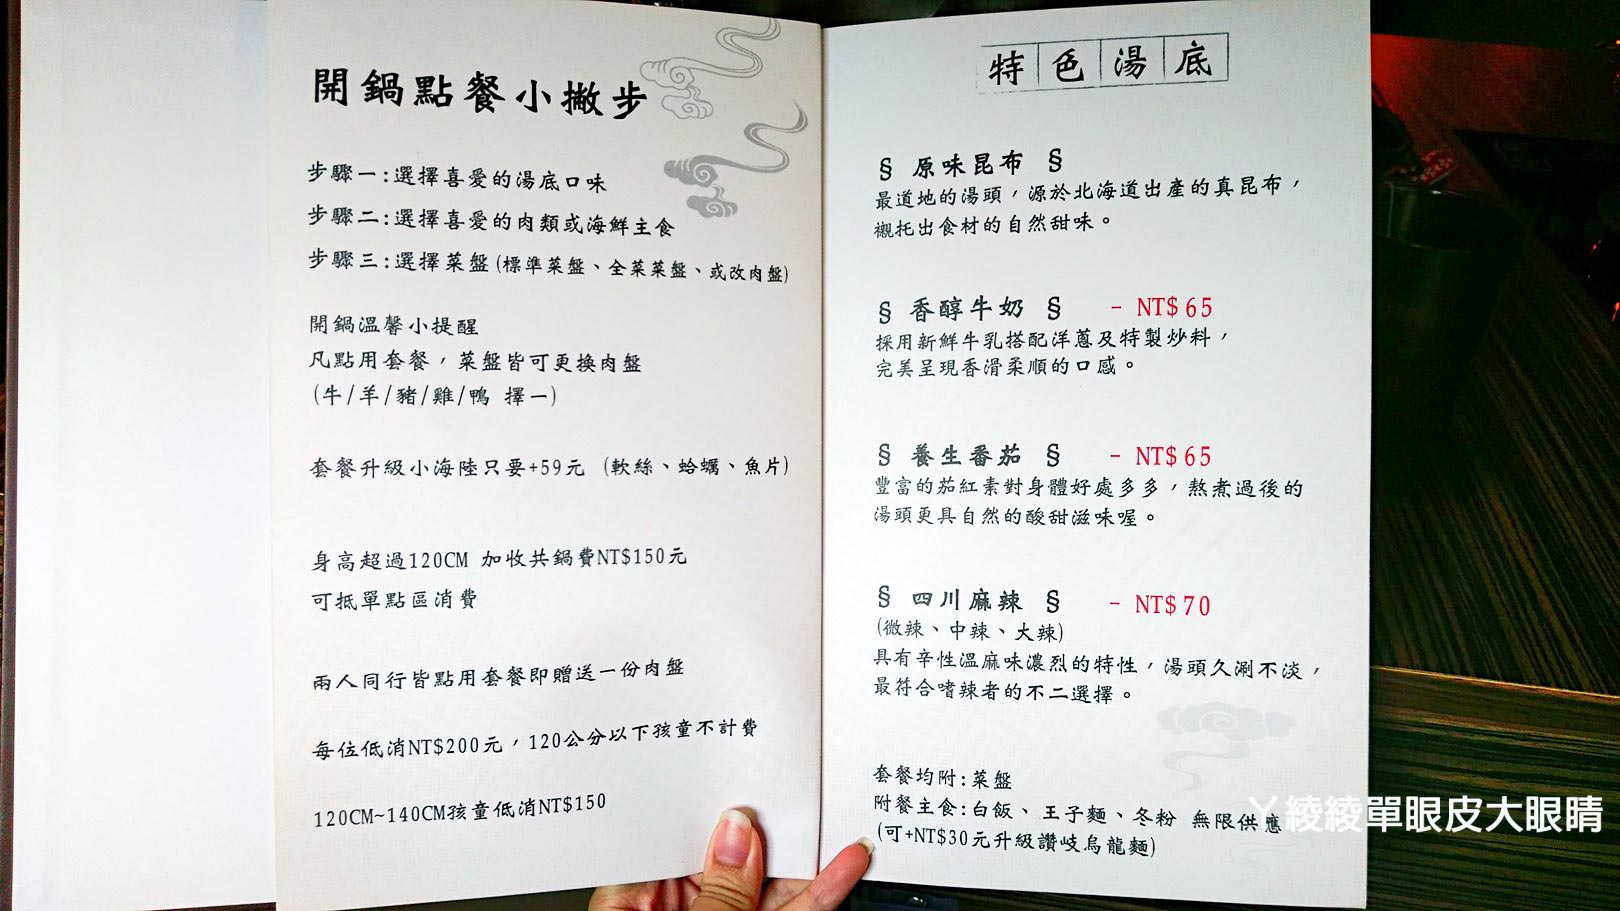 開鍋點餐小撇步
步驟一:選擇喜愛的湯底口味
步驟二:選擇喜愛的肉類或海鮮主食
步驟三:選擇菜盤(標準菜盤、全菜菜盤、或改肉盤)
開鍋溫馨小提醒
凡點用套餐，菜盤皆可更換肉盤
(牛/羊/豬/雞/鴨 擇一)
套餐升級小海陸只要+59元 (軟絲、蛤蠣、魚片)
身高超過120CM 加收共鍋費NT$150元
可抵單點區消費
兩人同行皆點用套餐即贈送一份肉盤
每位低消NT$200元，120公分以下孩童不計費
120CM~140CM孩童低消NT$150
特色湯底
§ 原味昆布 §
最道地的湯頭，源於北海道出產的真昆布，
襯托出食材的自然甜味。
§ 香醇牛奶 § - NT$65
採用新鮮牛乳搭配洋蔥及特製炒料，
完美呈現香滑柔順的口感。
§ 養生番茄 § - NT$65
豐富的茄紅素對身體好處多多，熬煮過後的
湯頭更具自然的酸甜滋味喔。
§ 四川麻辣 § - NT$70
(微辣、中辣、大辣)
具有辛性溫麻味濃烈的特性，湯頭久涮不淡，
最符合嗜辣者的不二選擇。
套餐均附:菜盤
附餐主食:白飯、王子麵、冬粉 無限供應
(可+NT$30元升級讚岐烏龍麵)
ㄚ綾綾單眼皮大眼睛